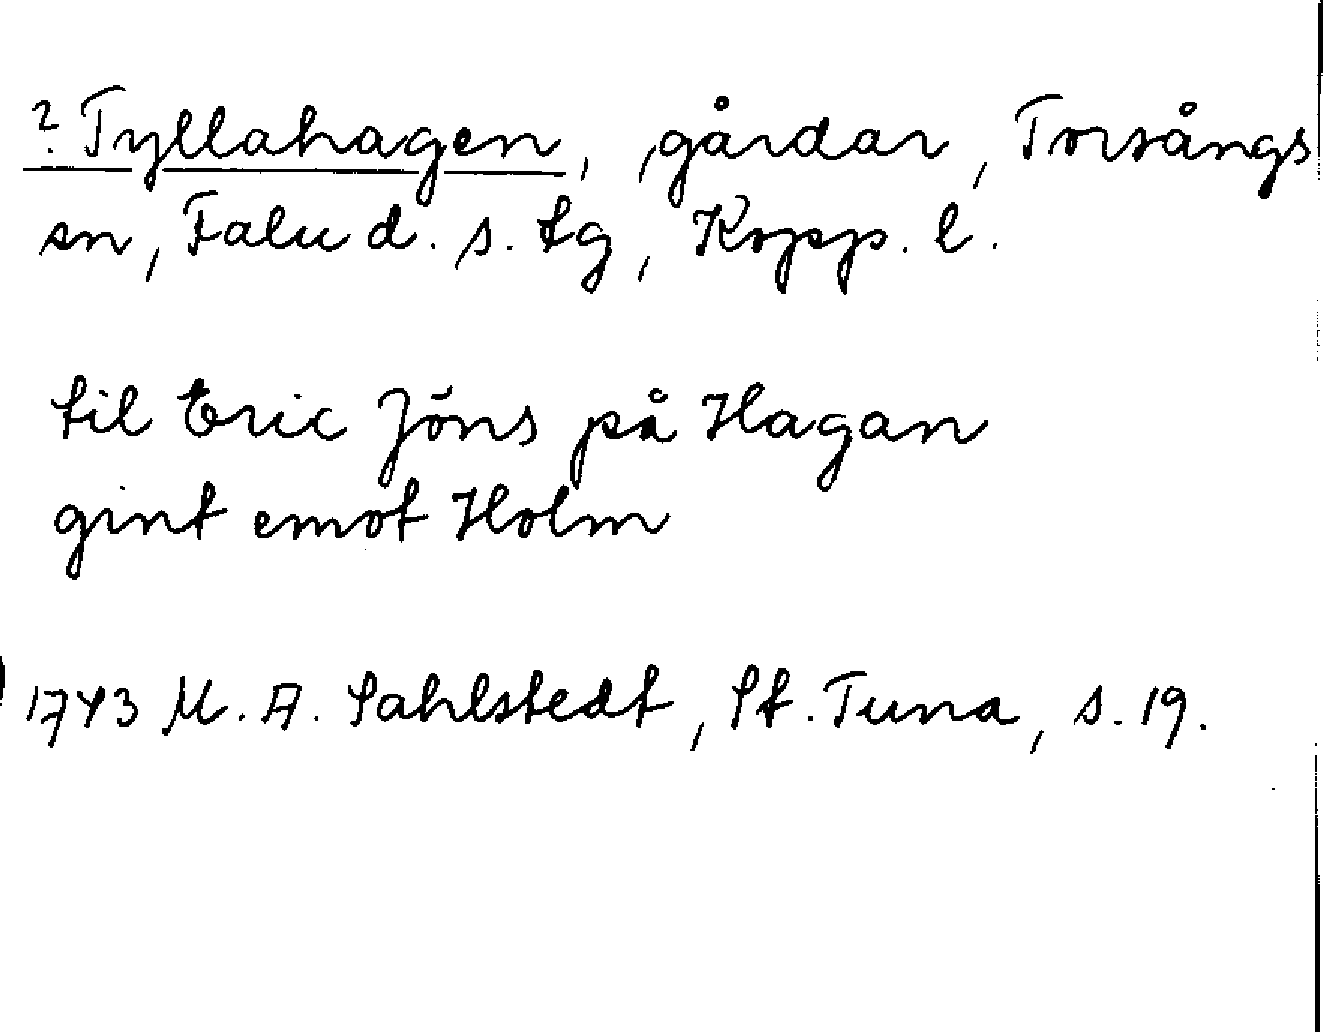 ? Tyllahagen, gårdar, Torsångs
sn, Falu d. s. tg, Kopp. l.
til Eric Jöns på Hagan
gint emot Holm
1743 M. A. Sahlstedt, St. Tuna, s. 19.